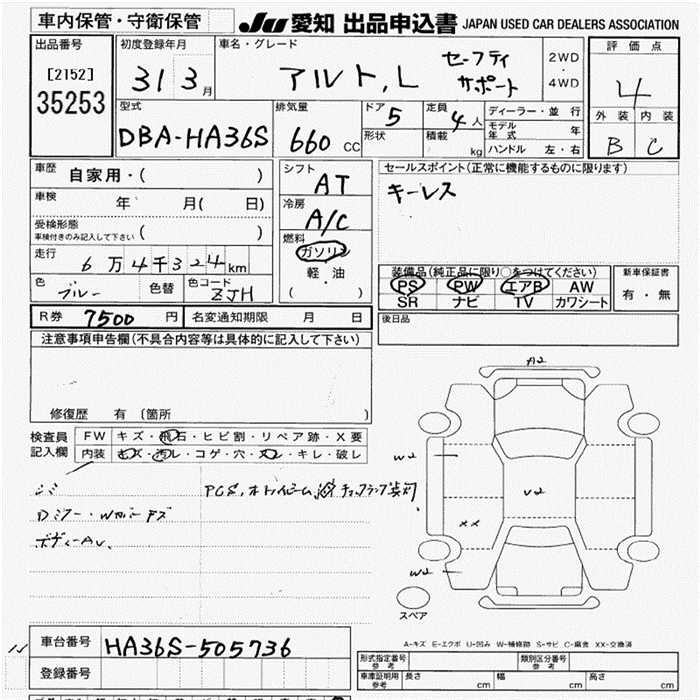 車内保管・守衛保管
JU 愛知 出品申込書 JAPAN USED CAR DEALERS ASSOCIATION
出品番号
[2152]
35253
初度登録年月
31 3 月
車名・グレード
アルト, L
セーフティ
サポート
2WD
・
4WD
評価点
4
外装 内装
B C
型式
DBA-HA36S
排気量
660 CC
ドア 5
形状
定員 4 人
積載 kg
ディーラー・並 行
モデル年式 年
ハンドル 左・右
車歴 自家用・( )
車検 年 月( 日)
受検形態
車検付きのみ記入して下さい ( )
走行
6万4千324km
色
ブルー
色替
色コード
ZJH
シフト
AT
冷房
A/C
燃料
ガソリン
軽・油
( )
セールスポイント(正常に機能するものに限ります)
キーレス
装備品(純正品に限り○をつけてください)
PS PW エアB AW
SR ナビ TV カワシート
新車保証書
有・無
R券 7500 円
名変通知期限 月 日
後日品
注意事項申告欄(不具合内容等は具体的に記入して下さい)
修復歴 有 (箇所 )
検査員
記入欄
FW キズ・飛石・ヒビ割・リペア跡・X要
内装 キズ・汚レ・コゲ・穴・スレ・キレ・破レ
シミ
Dミラー・Wカバーキズ
ボディーAU、
PCS,オートハイビーム
チェックランプ点灯
A2
W2
U2
XX
W2
スペア
A-キズ E-エクボ U-凹み W-補修跡 S-サビ C-腐食 XX-交換済
車台番号 HA36S-505736
登録番号
形式指定番号
参考
類別区分番号
参考
車庫証明用
参考
長さ cm 幅 cm 高さ cm